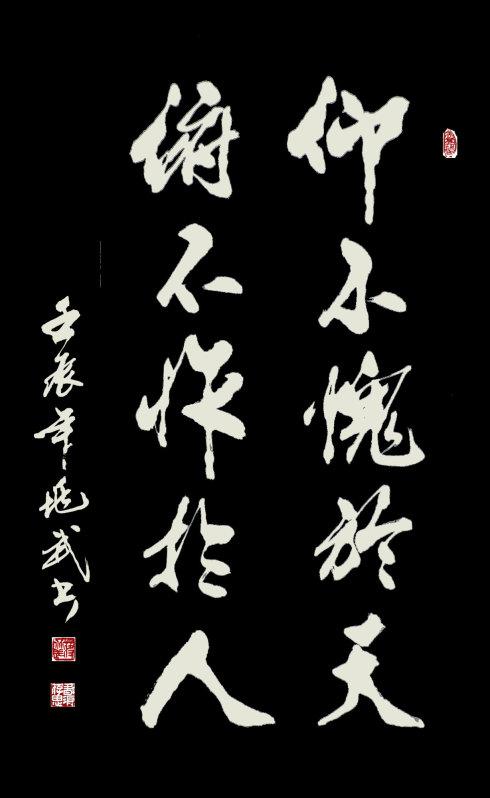 仰不愧於天
俯不怍於人
壬辰年兆武书